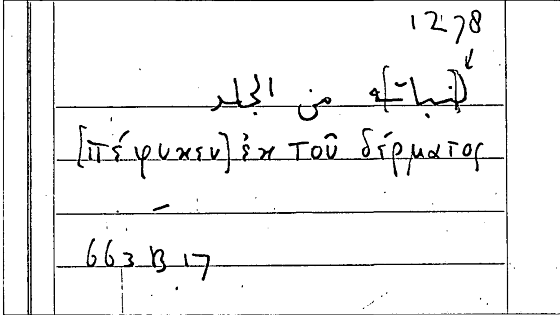 1278
[نباته] من الجلد
[πέφυκεν] ἐκ τοῦ δέρματος
663 B 17